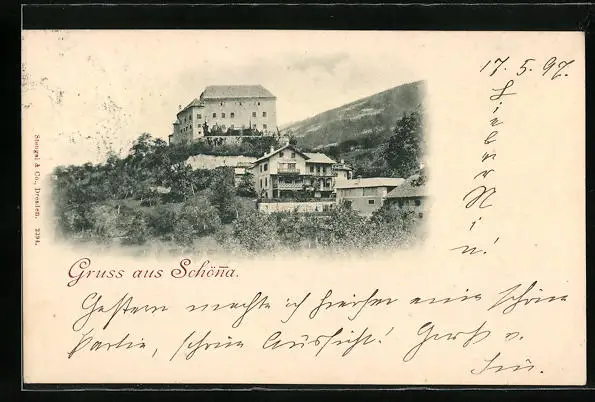 17. 5. 97.
Lieber
Min!
Stengel & Co., Dresden. 2394.
Gruss aus Schön̅a.
Gestern machte ich hierher eine schöne
Partie, schöne Aussicht! Gruß v.